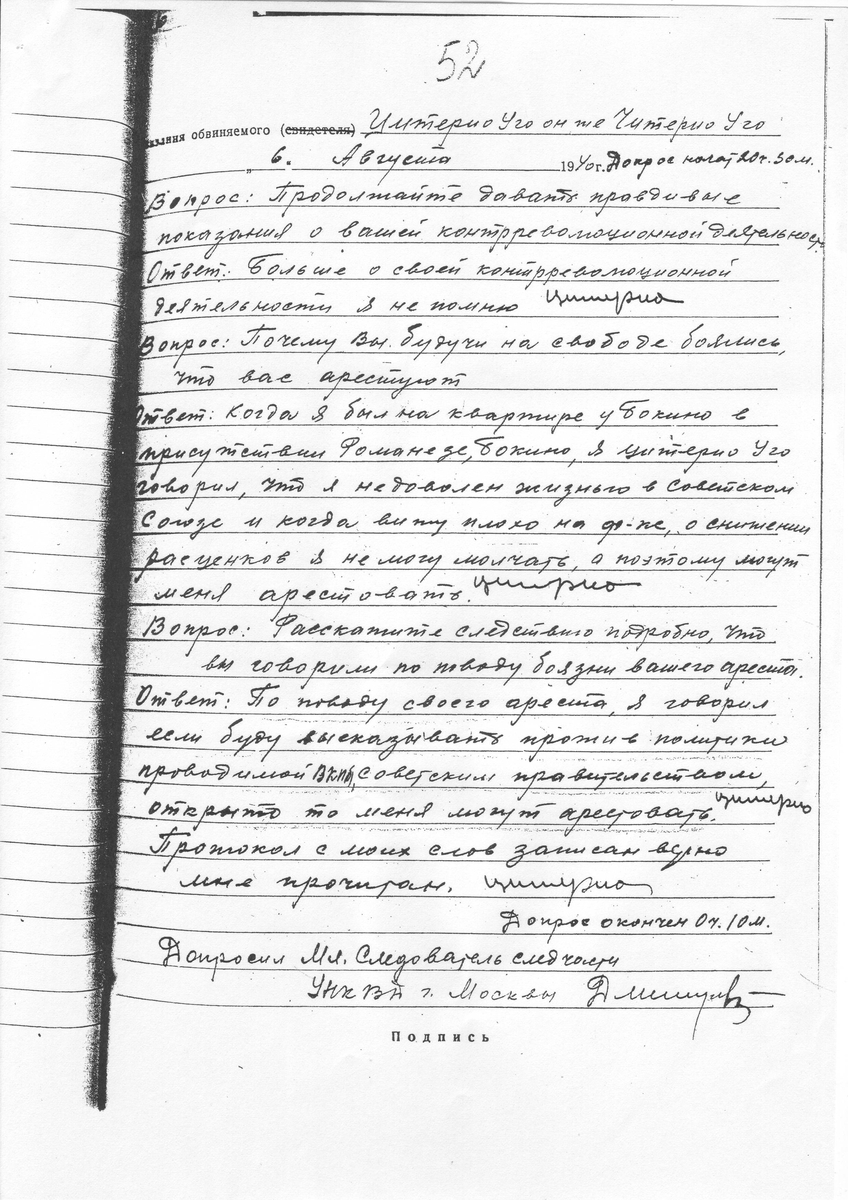 52
обвиняемого (свидетеля) Цитерио Уго он же Читерио Уго
„ 6. Августа 1940 г. Допрос начат 20 ч. 30 м.
Вопрос: Продолжайте давать правдивые
показания о вашей контрреволюционной деятельност
Ответ: Больше о своей контрреволюционной
деятельности я не помню Цитерио
Вопрос: Почему Вы будучи на свободе боялись,
что вас арестуют
Ответ: Когда я был на квартире у Бокино в
присутствии Романеде, Бокино, я Цитерио Уго
говорил, что я недоволен жизнью в Советском
Союзе и когда вижу плохо на ф-ке, о снижении
расценков я не могу молчать, а поэтому могут
меня арестовать. Цитерио
Вопрос: Расскажите следствию подробно, что
вы говорили по поводу боязни вашего ареста.
Ответ: По поводу своего ареста, я говорил
если буду высказывать против политики
проводимой ВКПб, Советским правительством,
открыто то меня могут арестовать. Цитерио
Протокол с моих слов записан верно
мне прочитан. Цитерио
Допрос окончен 0 ч. 10 м.
Допросил Мл. Следователь следчасти
УНКВД г. Москвы
Подпись